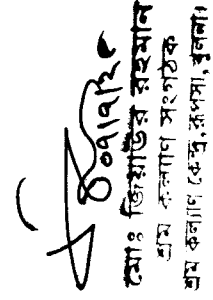 ০৭/৭/২৫
মোঃ জিয়াউর রহমান
শ্রম কল্যাণ সংগঠক
শ্রম কল্যাণ কেন্দ্র, রূপসা, খুলনা।